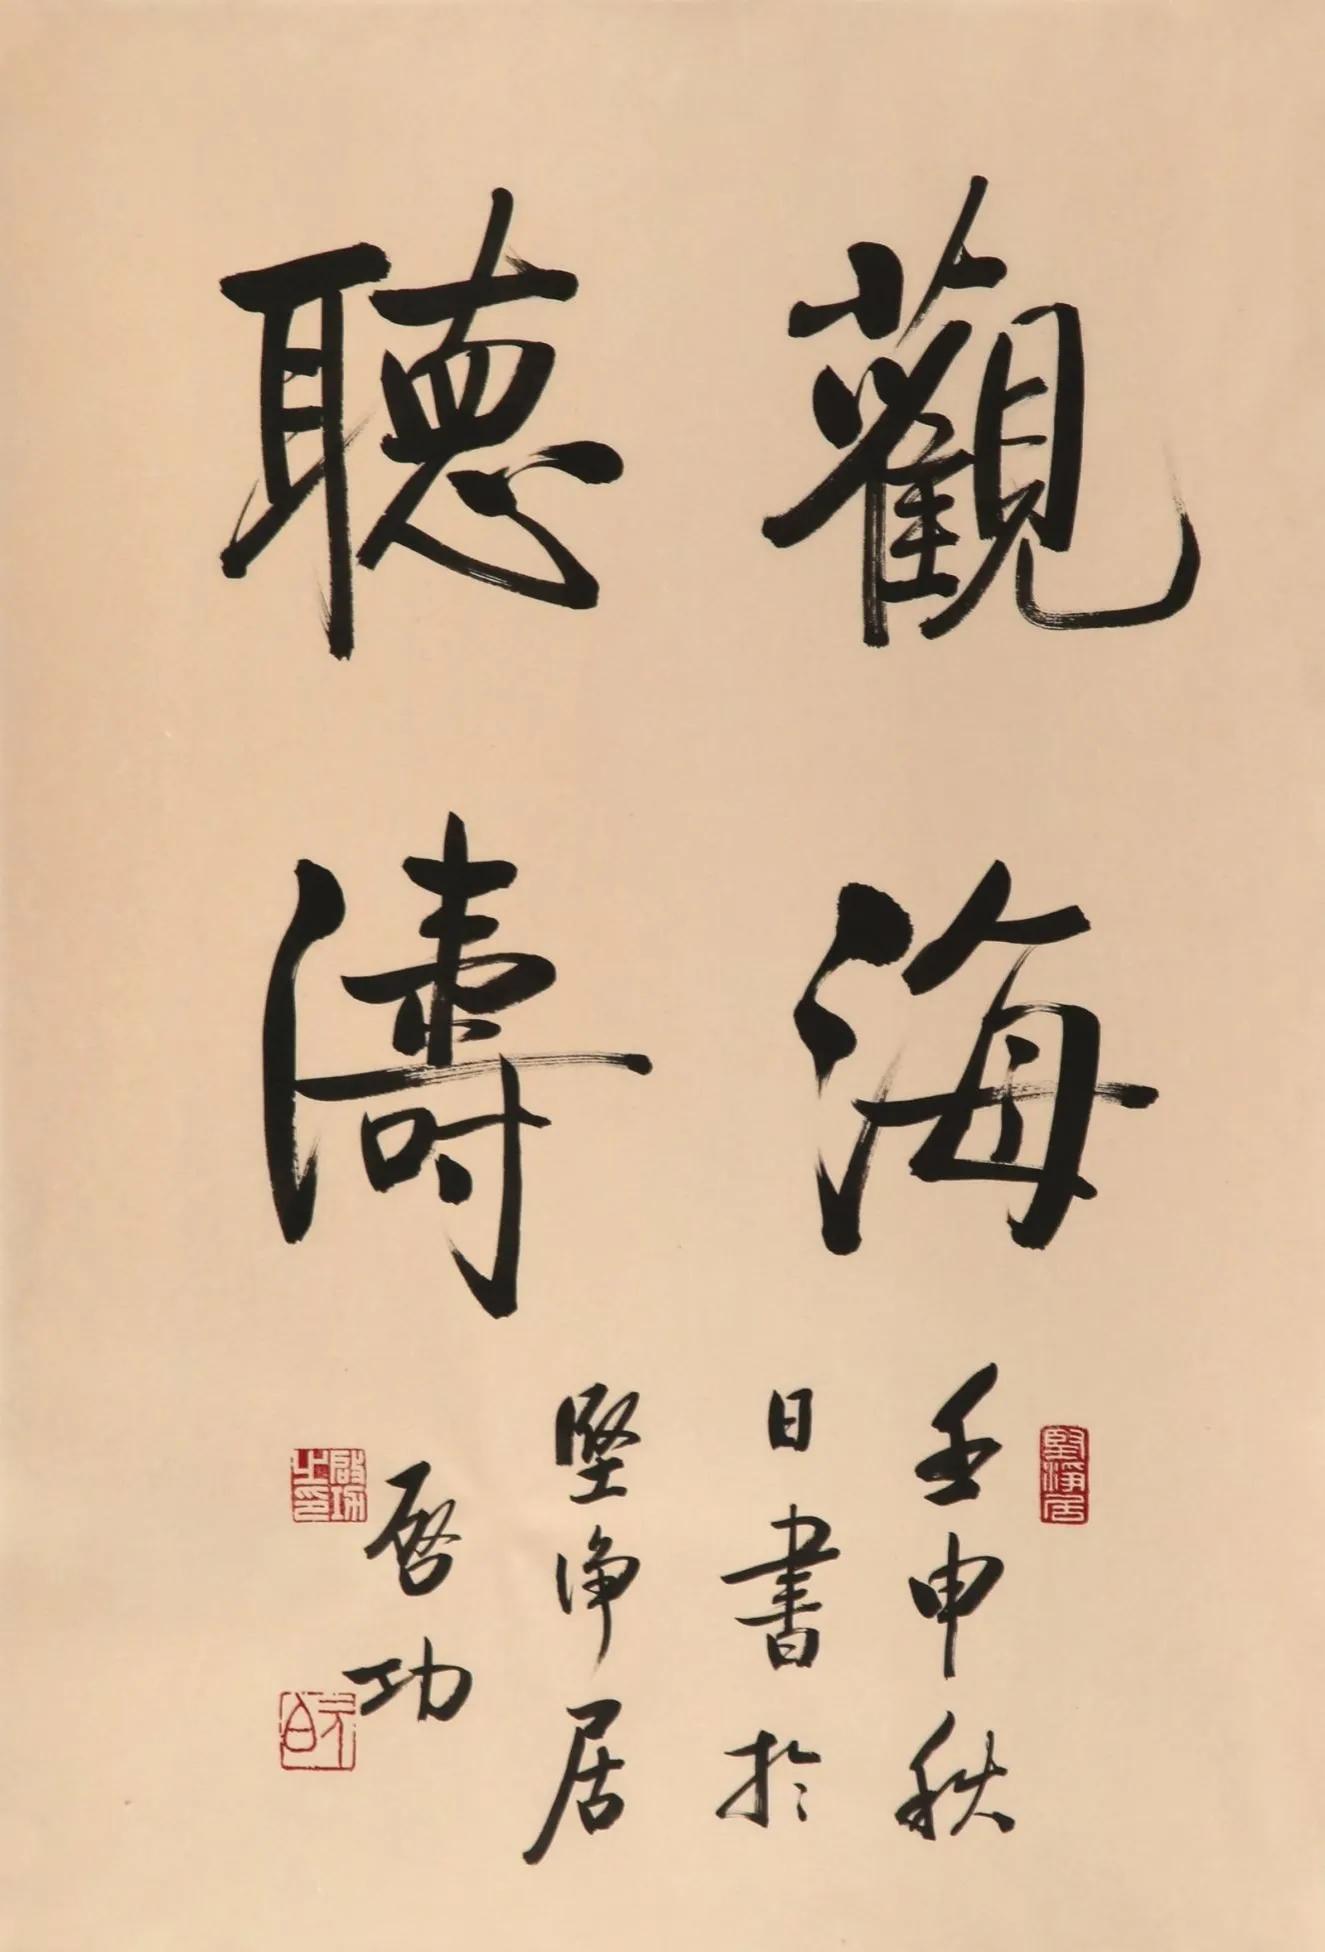 觀海
聽濤
壬申秋
日書於
堅淨居
啓功
堅淨居
啟功之印
元白